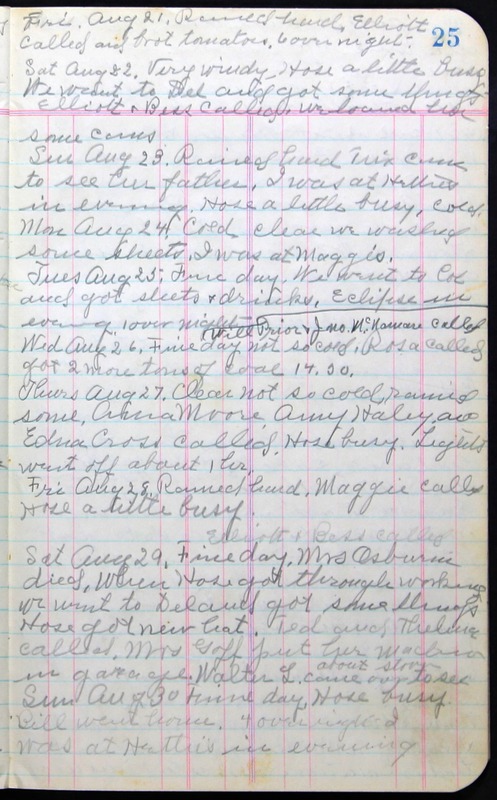 25
Fri. Aug 21, Rained hard, Elliott
called and brot tomatoes. 6 over night.
Sat Aug 22, Very windy, Hose a little busy
We went to Del and got some things
Elliott & Bess called, we loaned her
some cans
Sun Aug 23. Rained hard Trix came
to see her father, I was at Hattie's
in evening. Hose a little busy, cold.
Mon Aug 24, Cold clear we washed
some sheets, I was at Maggis.
Tues Aug 25, Fine day. We went to Col
and got sheets & drinks, Eclipse in
evening, 10 over night Will Prior & Jno. McNamare called
Wed Aug 26, Fine day not so cold, Rosa called
got 2 more tons of coal 14.50.
Thurs Aug 27. Clear not so cold, rained
some, Anna Moore Amy Haley, and
Edna Cross called, Hose busy. Lights
went off about 1 hr.
Fri Aug 28, Rained hard, Maggie called
Hose a little busy.
Elliott & Bess called
Sat Aug 29, Fine day, Mrs Osburn
died, When Hose got through working
we went to Del and got some things
Hose got new hat. Ted and Thelma
called. Mrs Goff put her machine
in garage. Walter L. came over to see
about
Sun Aug 30 Fine day, Hose busy.
Lill went home. 4 over night I
was at Hattie's in evening